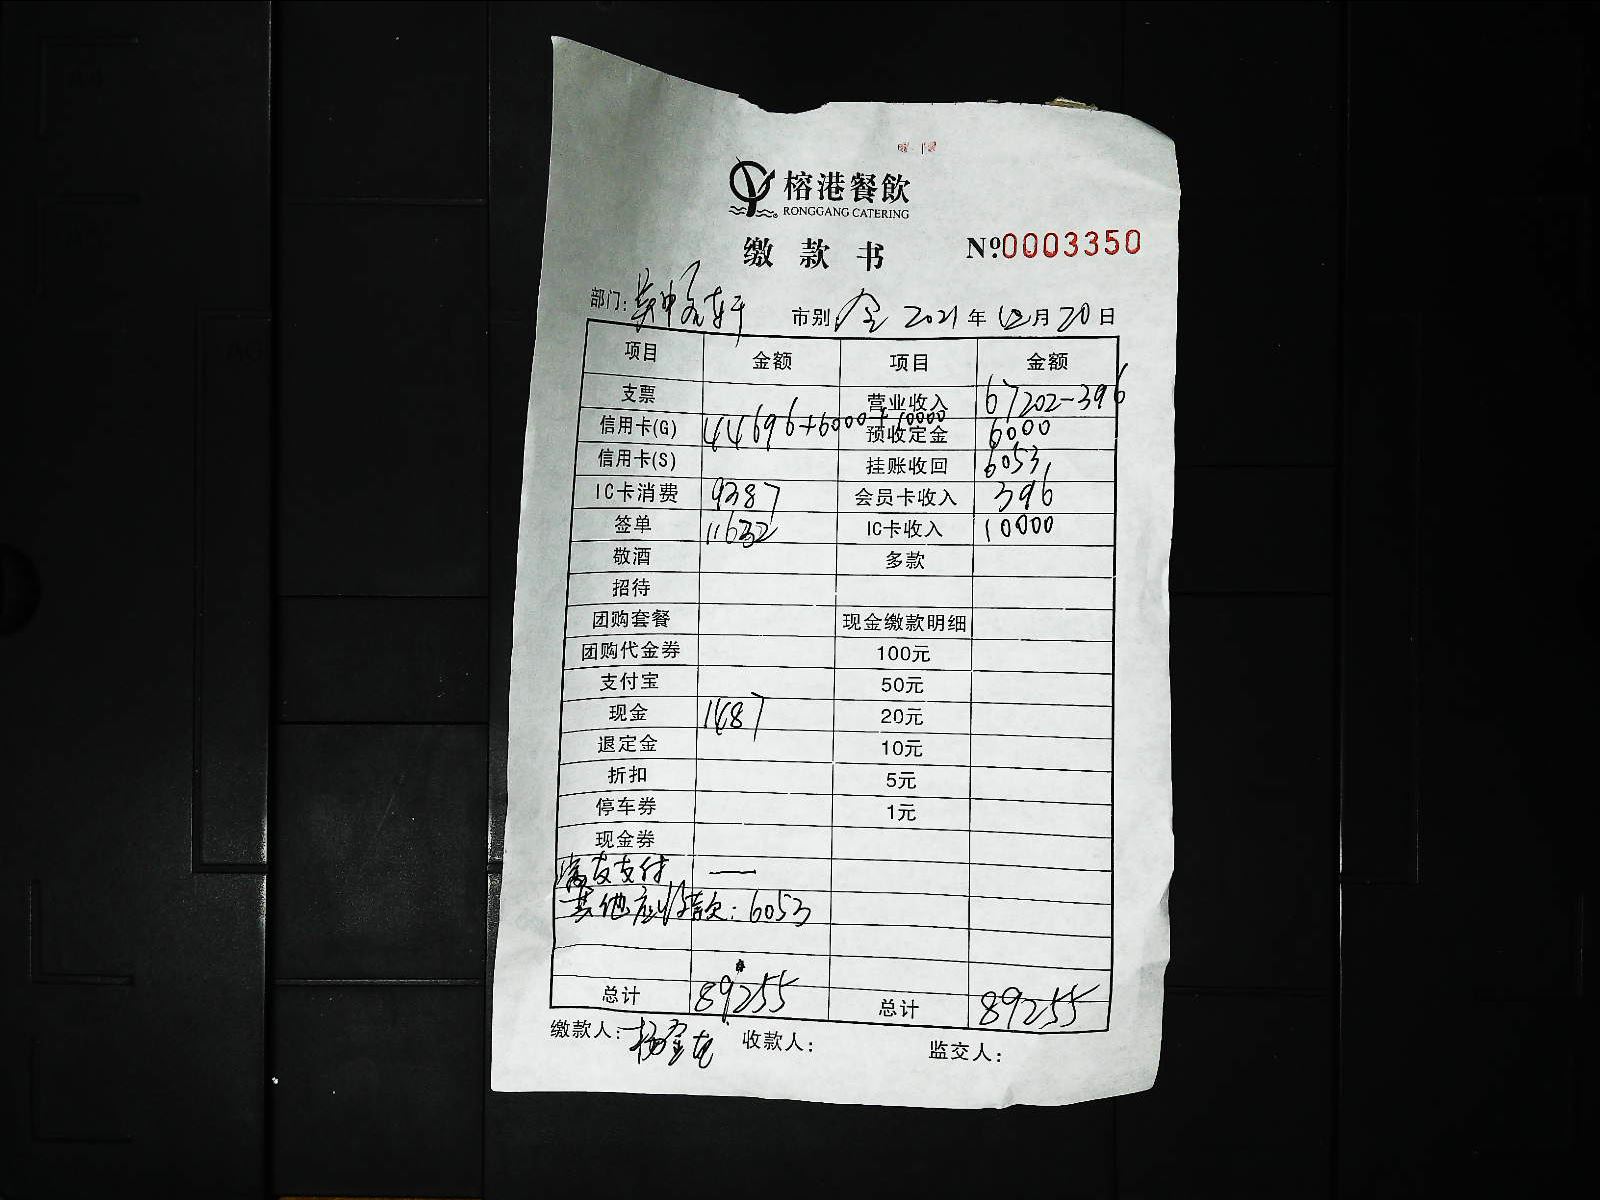 榕港餐飲
RONGGANG CATERING
缴款书 №0003350
部门: 吴中 市别: 全 2021年12月20日
项目 金额 项目 金额
支票 营业收入 67202-396
信用卡(G) 44696+6000+10000 预收定金 6000
信用卡(S) 挂账收回 6053
IC卡消费 9387 会员卡收入 396
签单 11632 IC卡收入 10000
敬酒 多款
招待
团购套餐 现金缴款明细
团购代金券 100元
支付宝 50元
现金 1487 20元
退定金 10元
折扣 5元
停车券 1元
现金券
友支付 —
其他应收款: 6053
总计 89255 总计 89255
缴款人: 杨金 收款人: 监交人: